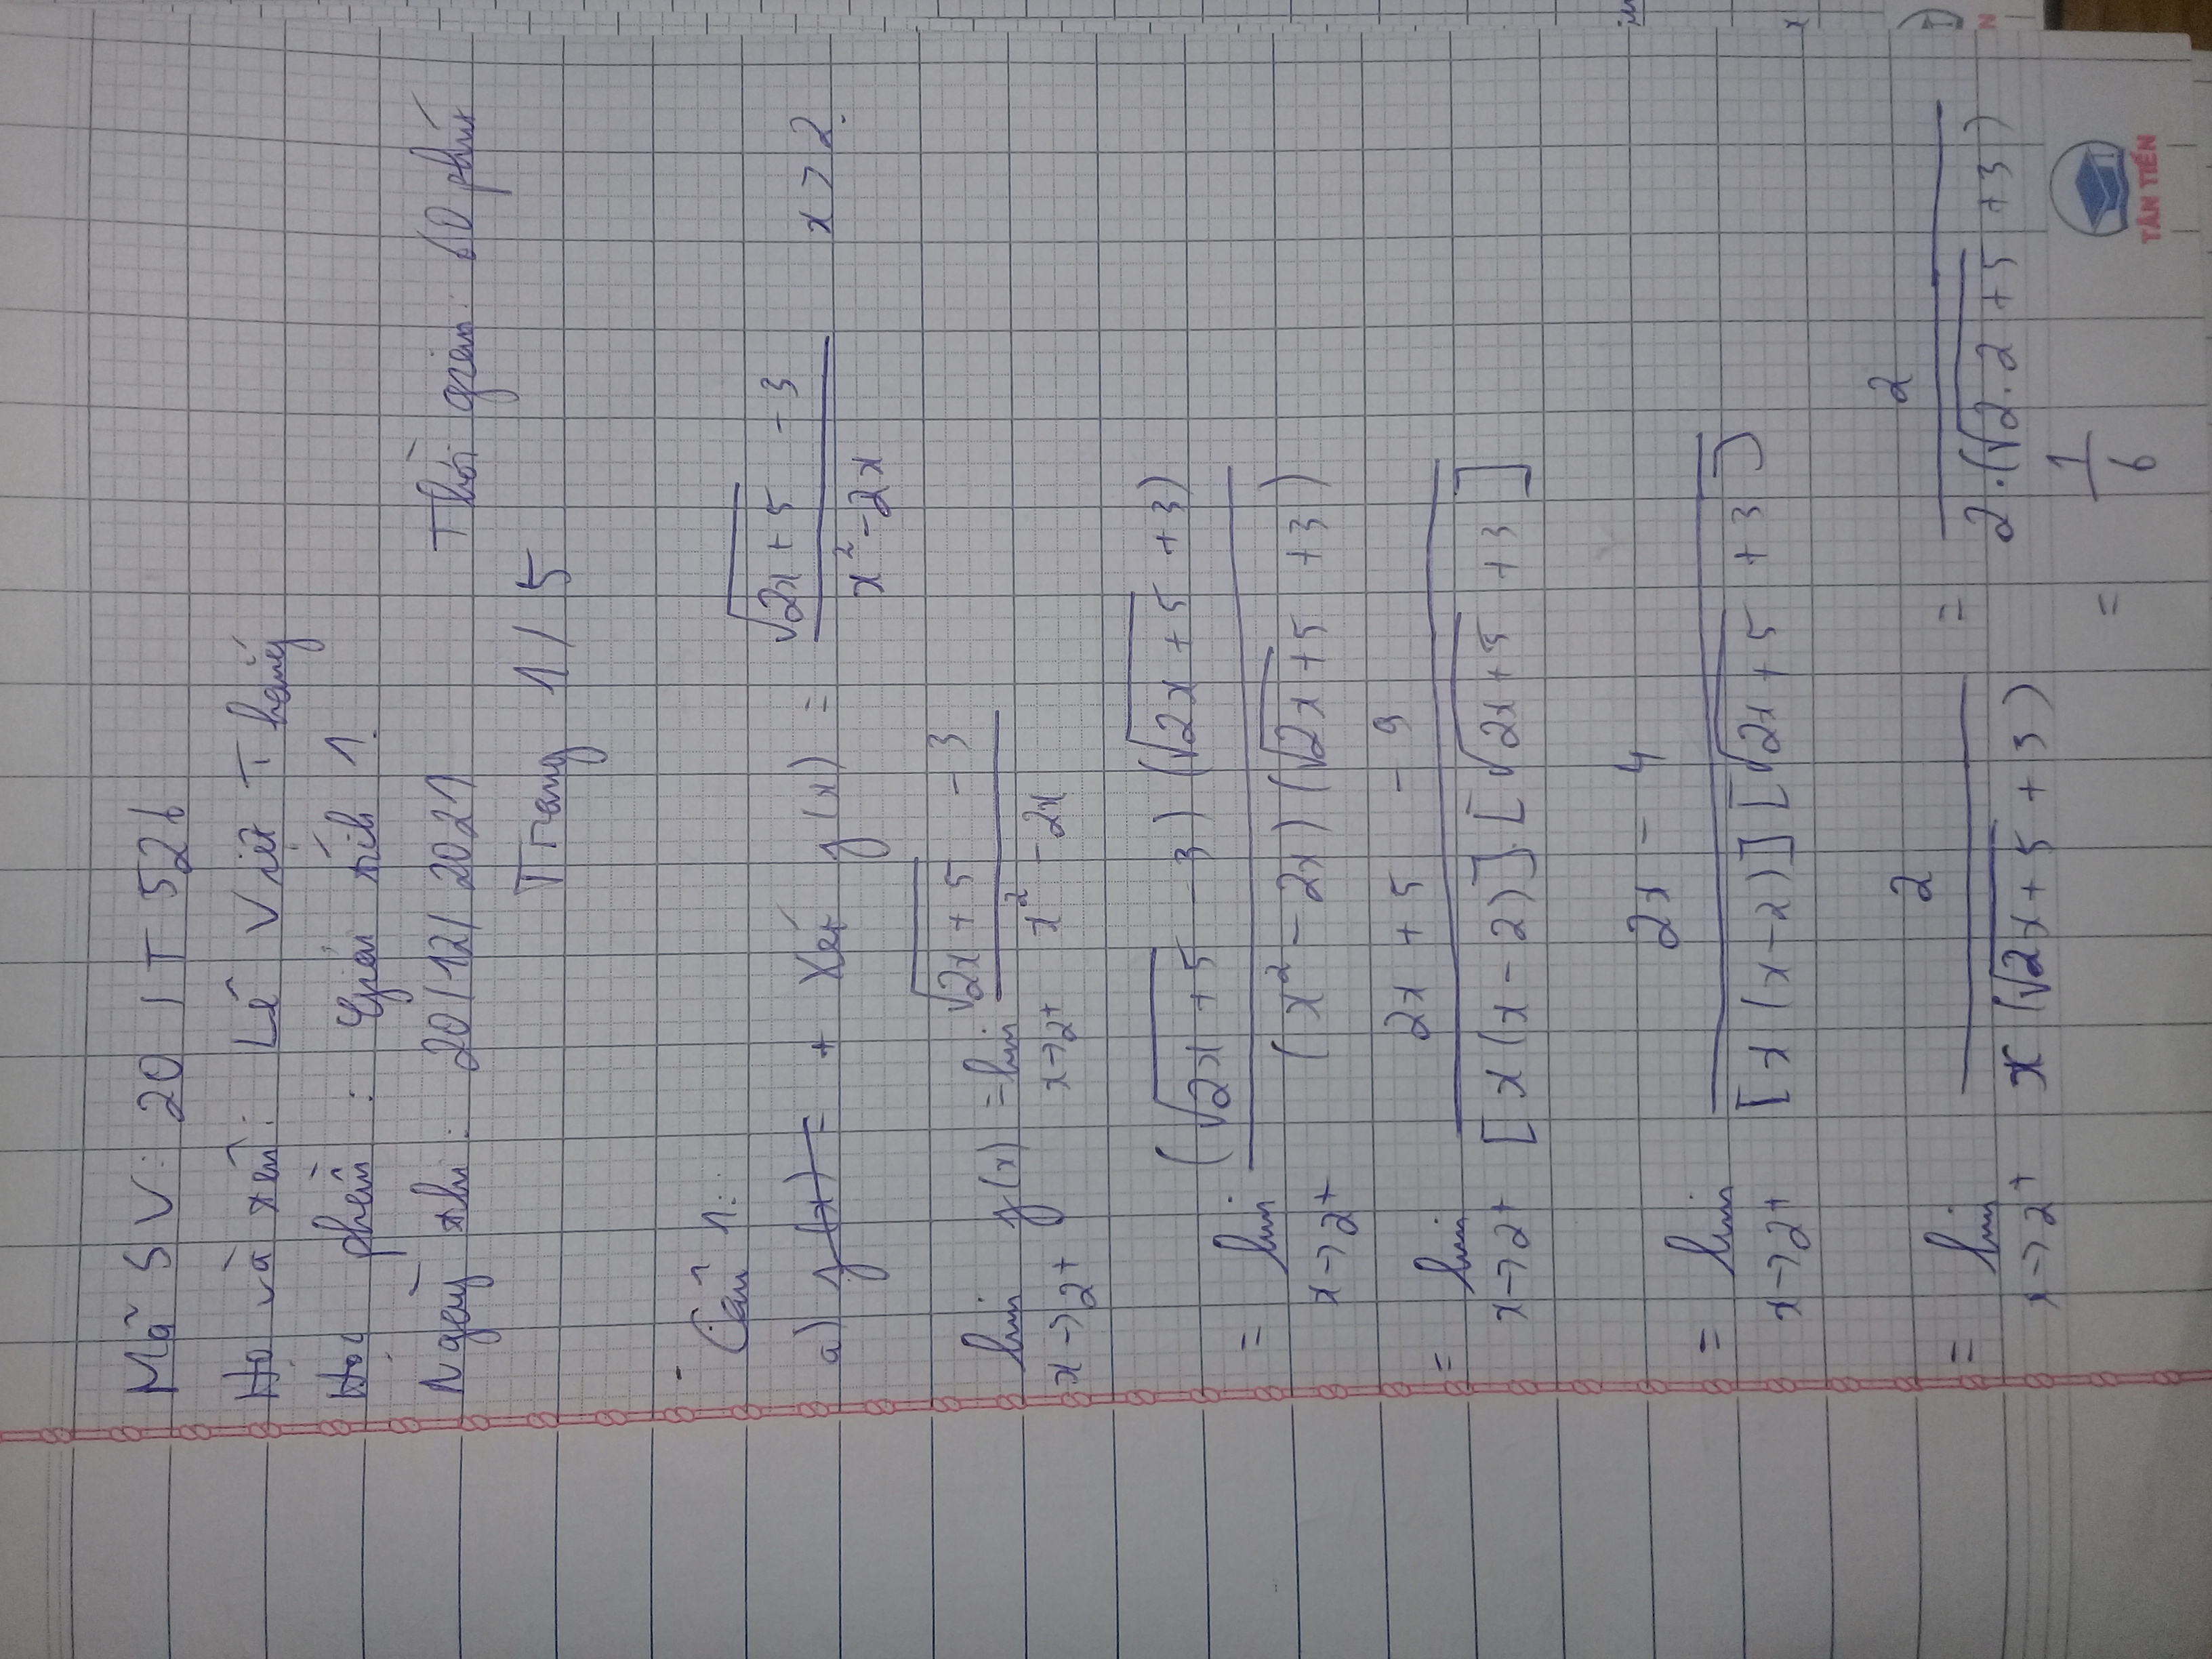 Mã SV: 20 IT 526
Họ và tên: Lê Việt Thắng
Học phần: Giải tích 1.
Ngày thi: 20/12/2021 Thời gian: 60 phút
Trang 1/5
Câu 1:
a) y(x) = + Xét y(x) = (√(2x+5) - 3)/(x² - 2x) x > 2
lim x→2⁺ y(x) = lim x→2⁺ (√(2x+5) - 3)/(x² - 2x)
= lim x→2⁺ ((√(2x+5) - 3)(√(2x+5) + 3))/((x² - 2x)(√(2x+5) + 3))
= lim x→2⁺ (2x + 5 - 9)/([x(x-2)].[√(2x+5) + 3])
= lim x→2⁺ (2x - 4)/([x(x-2)][√(2x+5) + 3])
= lim x→2⁺ 2/(x(√(2x+5) + 3)) = 2/(2.(√(2.2+5) + 3))
= 1/6
TÂN TIẾN